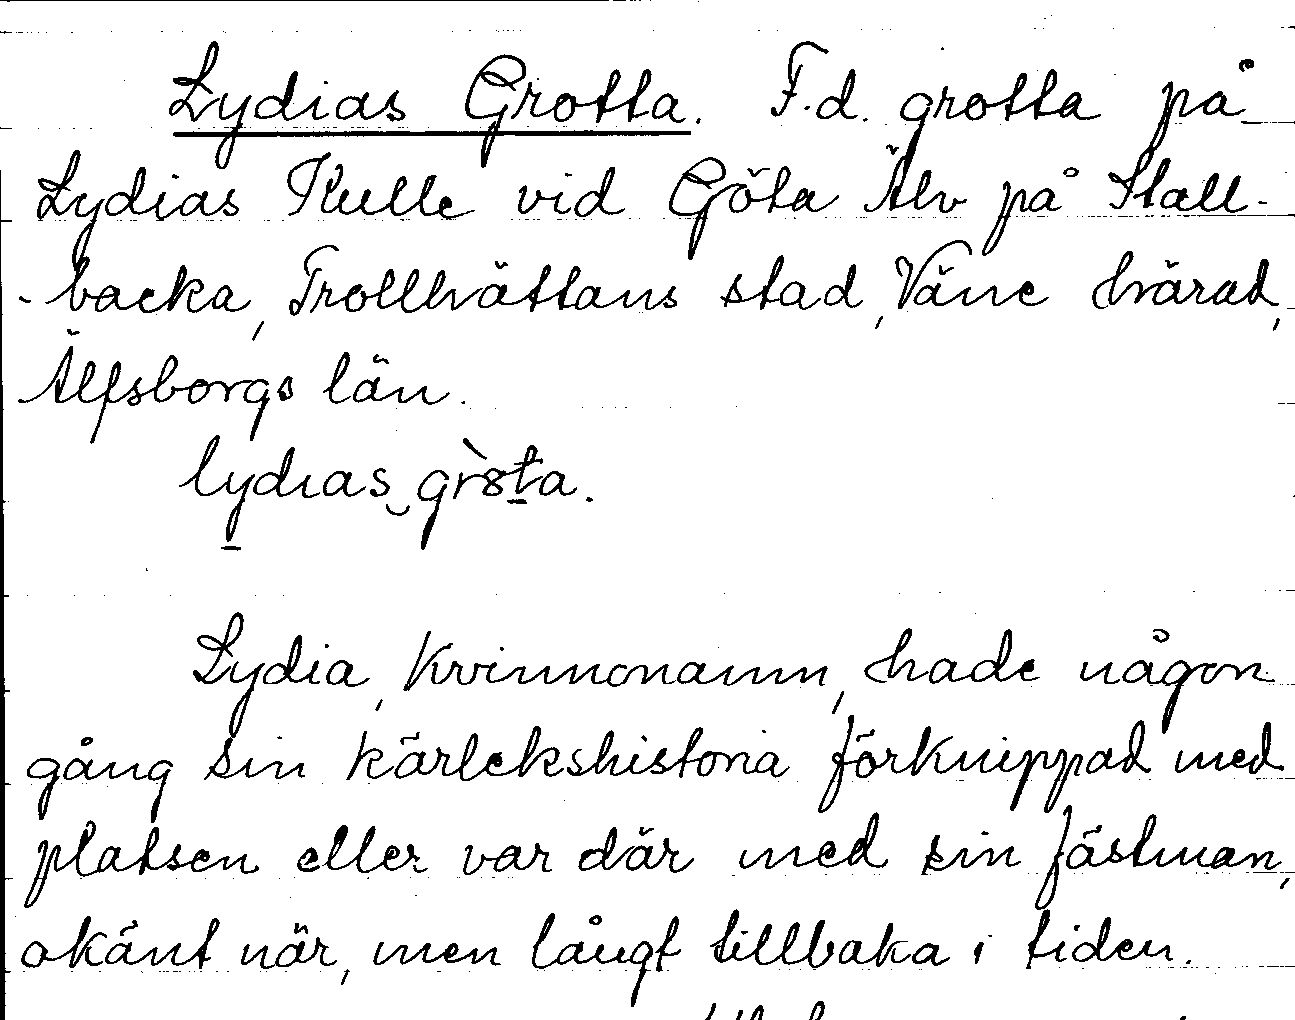 Lydias Grotta. F.d. grotta på
Lydias Kulle vid Göta Älv på Stall-
-backa, Trollhättans stad, Väne härad,
Älfsborgs län.
lydias grota.
Lydia, kvinnonamn, hade någon
gång sin kärlekshistoria förknippad med
platsen eller var där med sin fästman,
okänt när, men långt tillbaka i tiden.